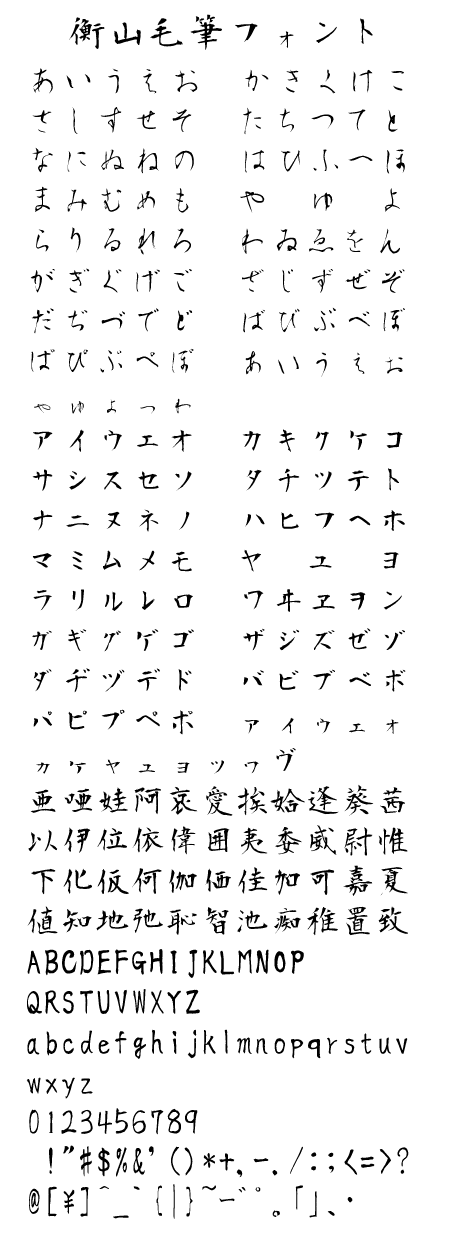 衡山毛筆フォント
あいうえお かきくけこ
さしすせそ たちつてと
なにぬねの はひふへほ
まみむめも や ゆ よ
らりるれろ わゐゑをん
がぎぐげご ざじずぜぞ
だぢづでど ばびぶべぼ
ぱぴぷぺぽ ぁぃぅぇぉ
ゃゅょっゎ
アイウエオ カキクケコ
サシスセソ タチツテト
ナニヌネノ ハヒフヘホ
マミムメモ ヤ ユ ヨ
ラリルレロ ワヰヱヲン
ガギグゲゴ ザジズゼゾ
ダヂヅデド バビブベボ
パピプペポ ァィゥェォ
ヵヶャュョッヮヴ
亜唖娃阿哀愛挨姶逢葵茜
以伊位依偉囲夷委威尉惟
下化仮何伽価佳加可嘉夏
値知地弛恥智池痴稚置致
ABCDEFGHIJKLMNOP
QRSTUVWXYZ
abcdefghijklmnopqrstuv
wxyz
0123456789
!"#$%&'()*+,-./:;<=>?
@[¥]^_`{|}~ー゛゜。「」、・